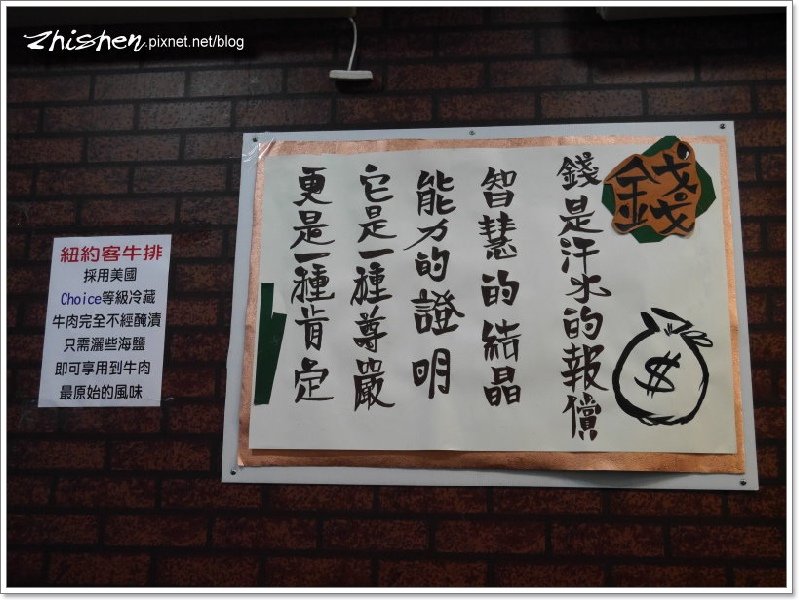 zhishen.pixnet.net/blog
錢
錢是汗水的報償
智慧的結晶
能力的證明
它是一種尊嚴
更是一種肯定
$
紐約客牛排
採用美國
Choice等級冷藏
牛肉完全不經醃漬
只需灑些海鹽
即可享用到牛肉
最原始的風味